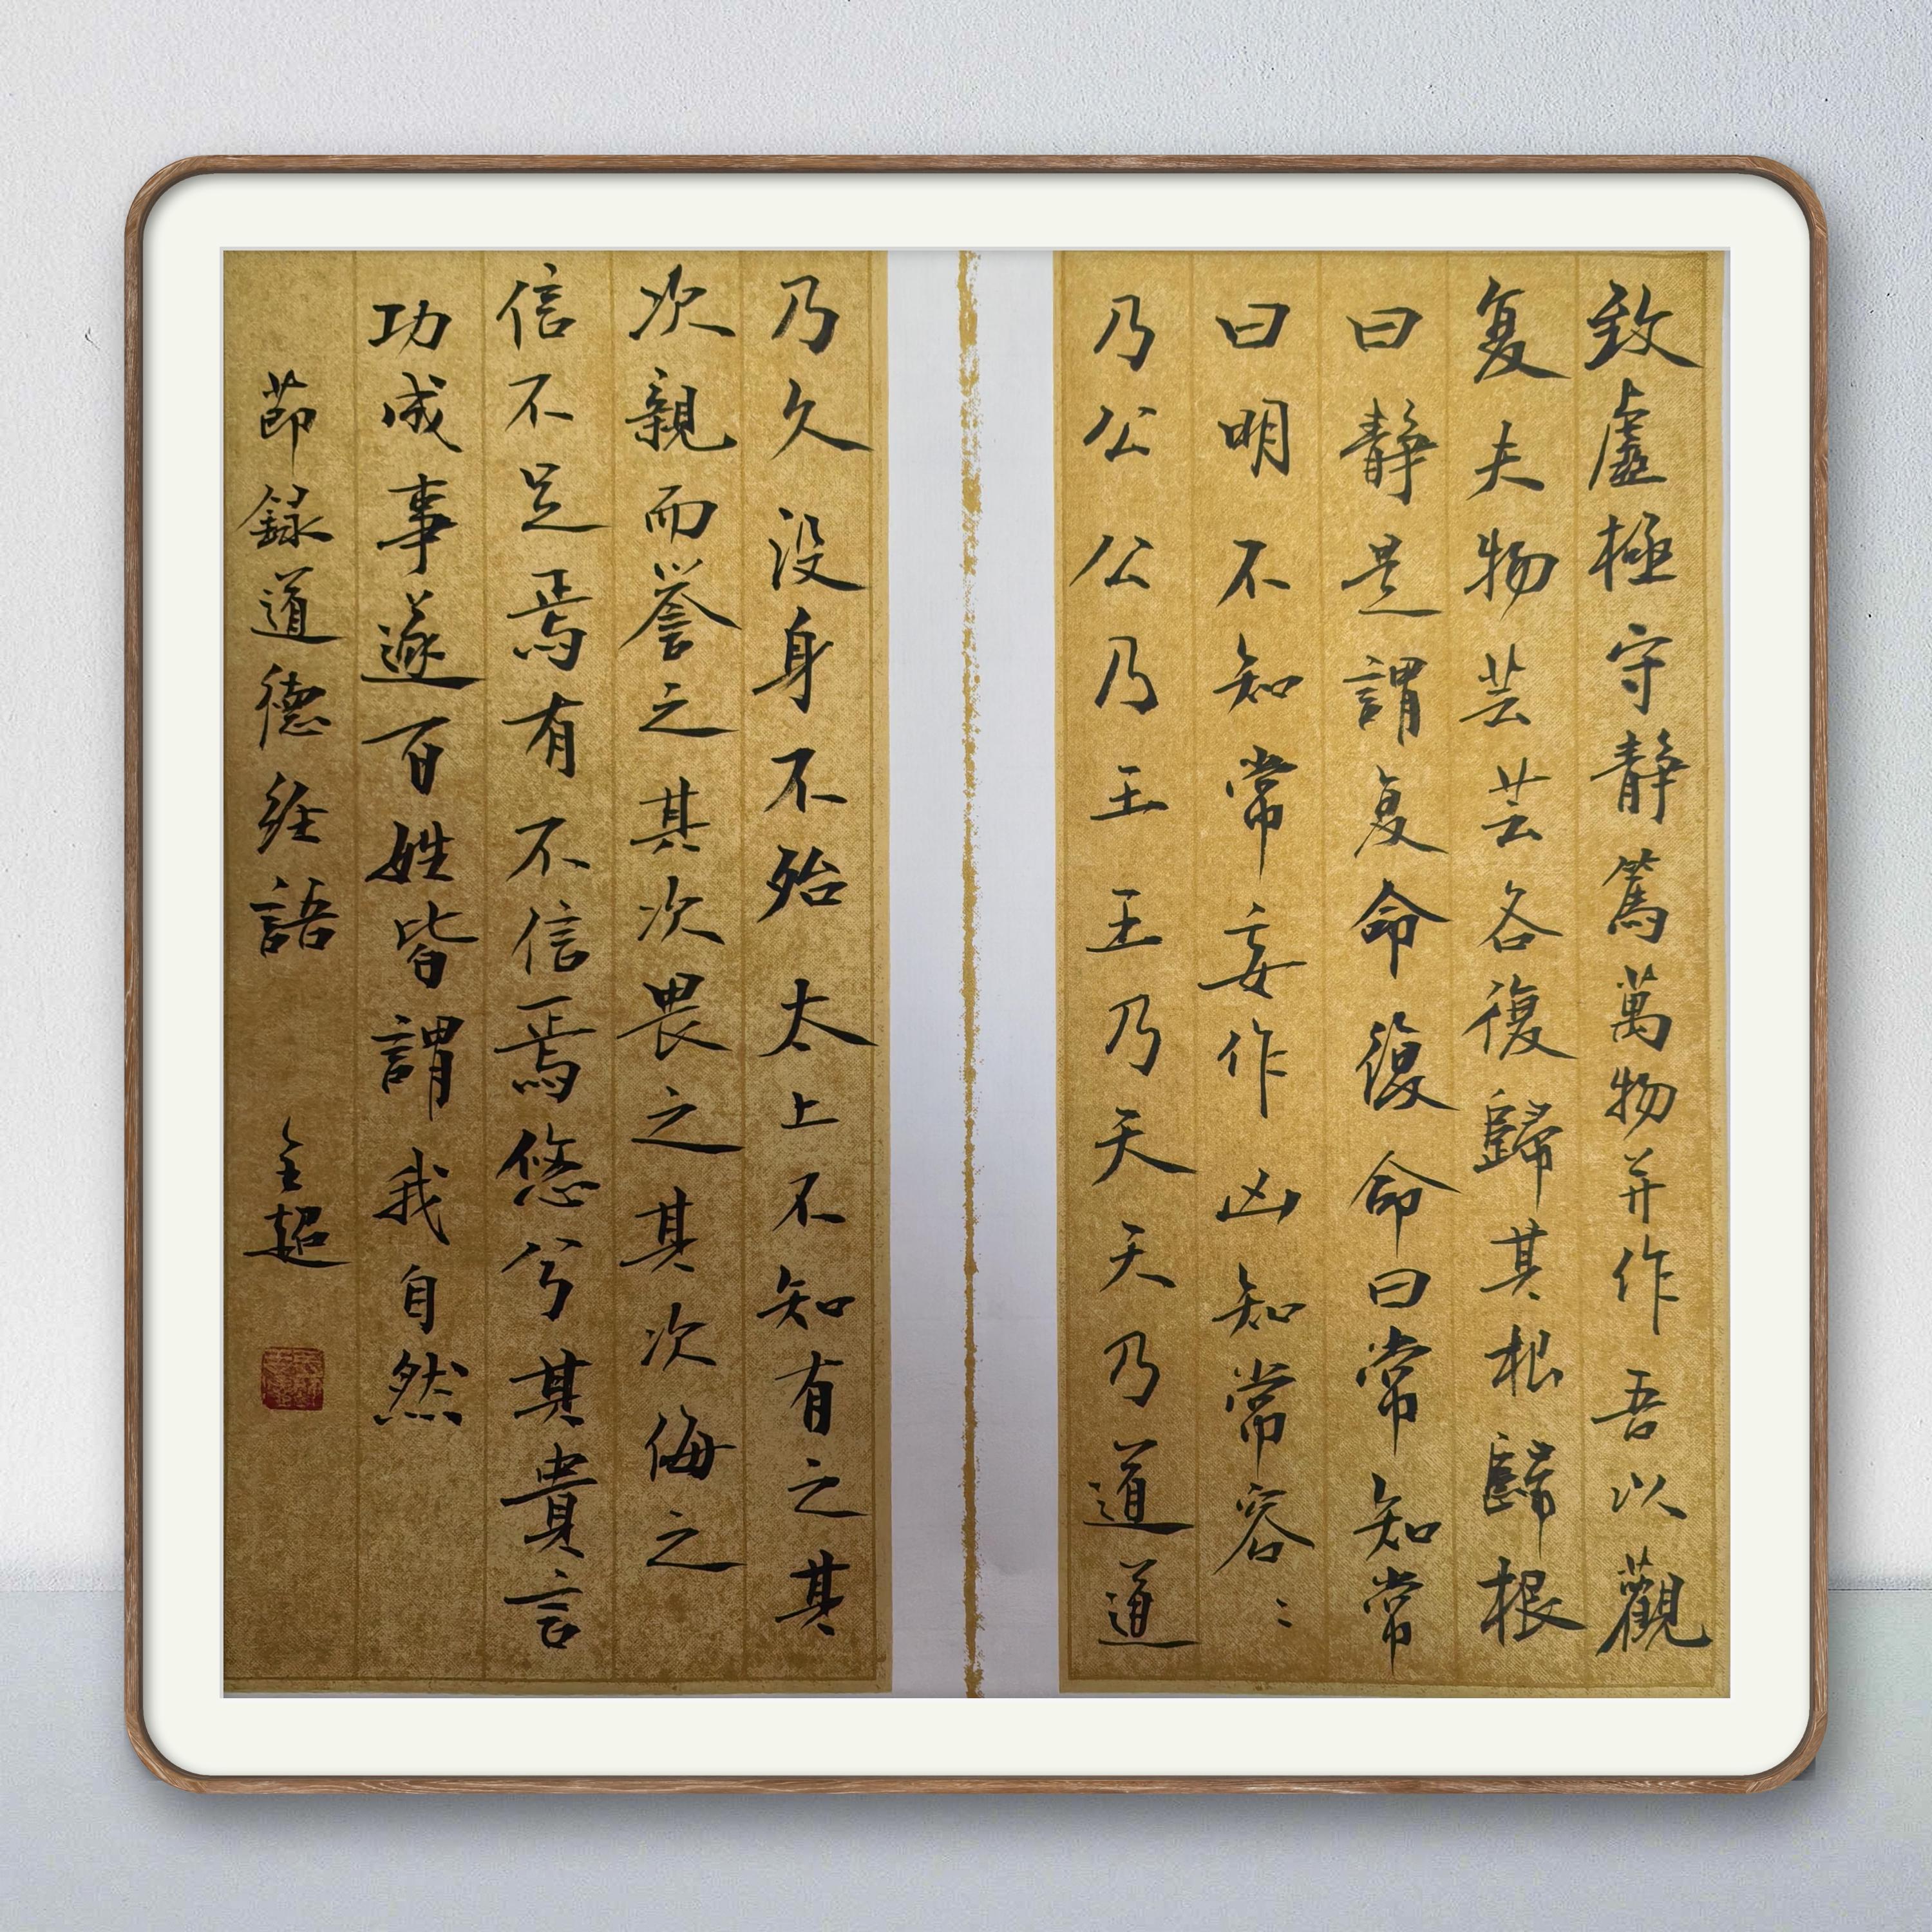 致虛極守静篤萬物并作吾以觀
复夫物芸芸各復歸其根歸根
曰靜是謂复命復命曰常知常
曰明不知常妄作凶知常容〻
乃公公乃王王乃天天乃道道
乃久没身不殆太上不知有之其
次親而誉之其次畏之其次侮之
信不足焉有不信焉悠兮其貴言
功成事遂百姓皆謂我自然
節録道德経語
全超